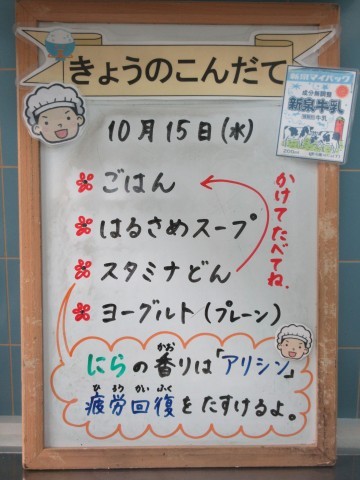 きょうのこんだて
新泉マイパック
成分無調整
新泉牛乳
10月15日(水)
ごはん
はるさめスープ
スタミナどん
ヨーグルト(プレーン)
かけてたべてね.
にらの香りは「アリシン」
疲労回復をたすけるよ。